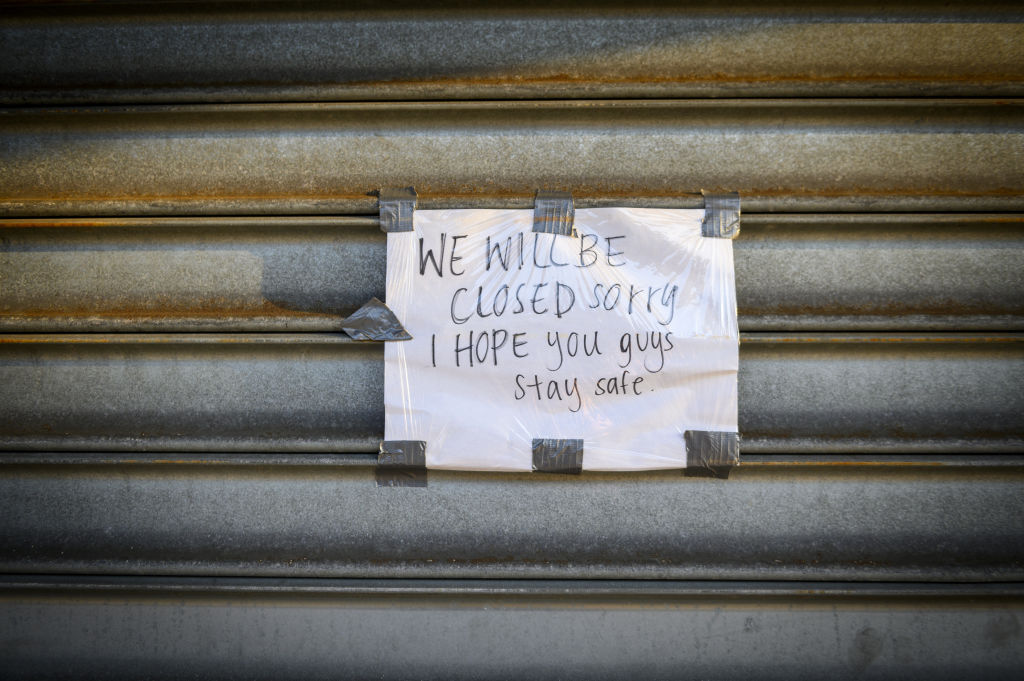 WE WILL BE
CLOSED SORRY
I HOPE YOU guys
stay safe.